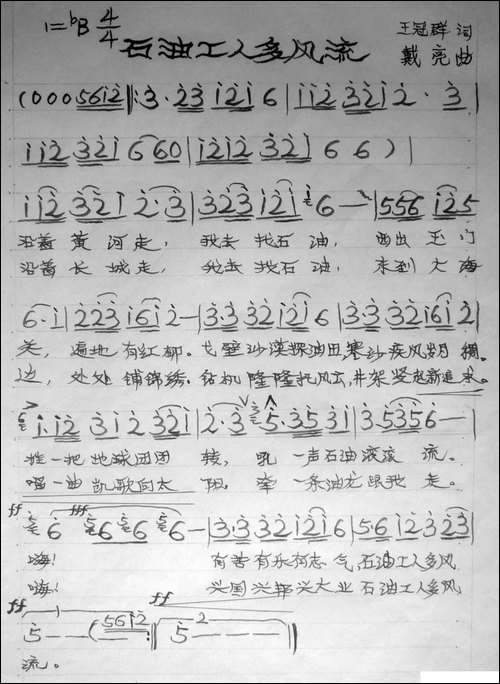 1=ᵇB 4/4
石油工人多风流
王冠群 词
戴亮 曲
(0 0 0 5612‖: 3· 23 121 6 | 112 321 2· 3 |
112 321 6 60 | 1212 321 6 6 ) |
112 321 2·3 | 323 121 6 — | 556 12 5
沿着黄河走， 我去找石油， 西出玉门
沿着长城走， 我去找石油， 来到大海
6·1 | 223 161 2 — | 3·3 32 121 6 | 3·3 32 161 2 |
关， 遍地有红柳。戈壁沙漠探油田，寒沙疾风
边， 处处铺锦绣。钻机隆隆托风云，井架竖起新追求。
1·12 3 1 2 321 | 2·3 5·35 31 | 3·535 6 — |
一把地球团团转， 吼一声石油滚滚流。
唱一曲凯歌向太阳， 牵一条油龙跟我走。
ff fff
6 6 6 6 — | 3·3 32 121 6 | 5·6 12 3 23 |
嗨！ 有苦有乐有志气，石油工人多风
嗨！ 兴国兴邦兴大业 石油工人多风
ff ff
5 — — (5612 :‖ 5 — — — ‖
流。